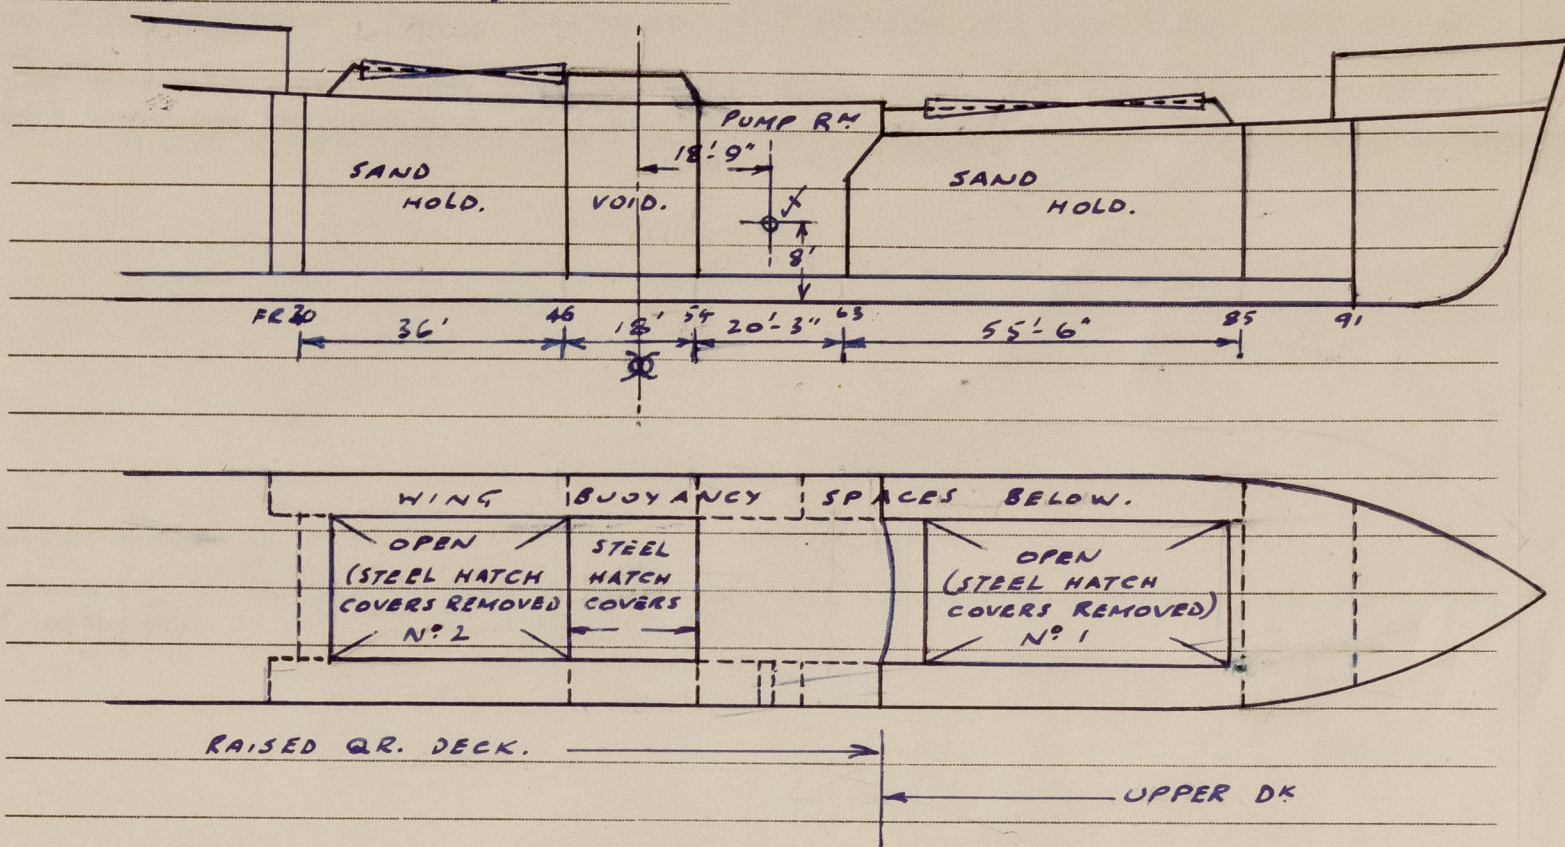 PUMP RM
18'-9"
SAND
HOLD.
VOID.
SAND
HOLD.
8'
FR 30 46 54 63 85 91
36' 18' 20'-3" 55'-6"
WING BUOYANCY SPACES BELOW.
OPEN
(STEEL HATCH
COVERS REMOVED)
Nº 2
STEEL
HATCH
COVERS
OPEN
(STEEL HATCH
COVERS REMOVED)
Nº 1
RAISED QR. DECK.
UPPER DK